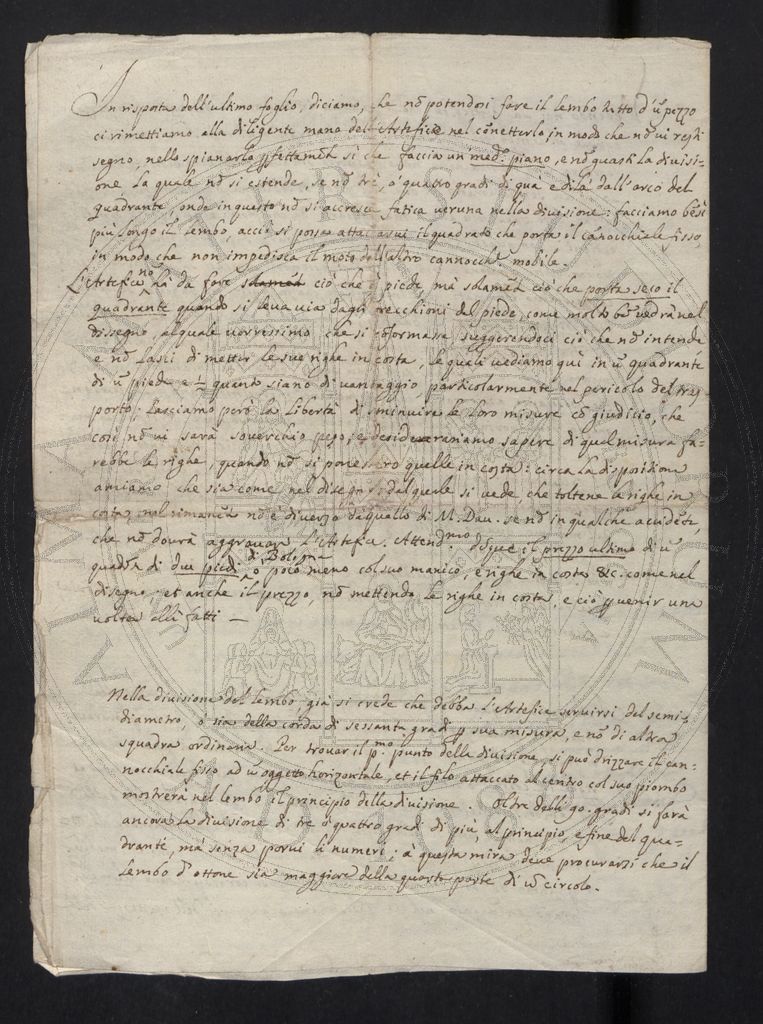 In risposta dell'ultimo foglio, diciamo, che nõ potendosi fare il lembo tutto d'ũ pezzo
ci rimettiamo alla diligente mano dell'Artefice nel cõnetterlo in modo che nõ vi resti
segno, nello spianarlo ꝑfettamẽte sì che faccia un med.º piano, e nõ guasti la divisi-
one la quale nõ si estende, se nõ trè, ò quattro gradi di quà e di là dall'arco del
quadrante, onde in questo nõ si accresce fatica veruna nella divisione: facciamo bẽsì
più longo il lembo, acciò si possa attaccarvi il quadrato che porta il canocchiale fisso,
in modo che non impedisca il moto dell'altro cannocch.e mobile.
L'Artefice nõ hà da fare solamẽte ciò che è piede, mà solamẽte ciò che porta seco il
quadrante quando si leva via dagli orecchioni del piede, come molto bẽ vedrà nel
disegno, al quale vorressimo che si cõformasse, suggerendoci ciò che nõ intende
e nõ lasci di metter le sue righe in costa, le quali vediamo quì in ũ quadrante
di ũ piede e ½ quanto siano di vantaggio, particolarmente nel pericolo del tras
porto; lasciamo però la libertà di sminuire le loro misure cõ giudicio, che
così nõ vi sarà soverchio peso; e desideraramo sapere di qual misura fa-
rebbe le righe, quando nõ si ponessero quelle in costa: circa la disposizione
amiamo che sia come nel disegno, dal quale si vede, che toltene le righe in
costa, nel rimanẽte nõ è diverso da quello di M. Dau. se nõ in qualche accidẽte,
che nõ dourà aggravare l'Artefice. Attend.mo dũque il prezzo ultimo di ũ
quadrãte di due piedi di Bologna ò poco meno col suo manico, e righe in costa &c. come nel
disegno; et anche il prezzo, nõ mettendo le righe in costa, e ciò ꝑ venir una
volta alli fatti —
Nella divisione del lembo già si crede che debba l'Artefice servirsi del semi-
diametro, ò sia della corda di sessanta gradi ꝑ sua misura, e nõ di altra
squadra ordinaria. Per trovar il p.mo punto della divisione, si può drizzare il can-
nocchiale fisso ad ũ oggetto horizontale, et il filo attaccato al centro col suo piombo
mostrerà nel lembo il principio della divisione. Oltre delli 90. gradi si farà
ancora la divisione di tre ò quattro gradi di più, al principio, e fine del qua-
drante, mà senza porvi li numeri; à questa mira deve procurarsi che il
lembo d'ottone sia maggiore della quarta parte di ũ circolo.